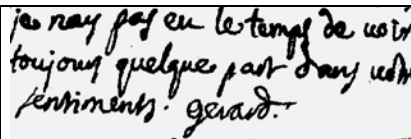 je nay pas eu le temps de voir
toujours quelque part dans votr
sentiments. gerard.